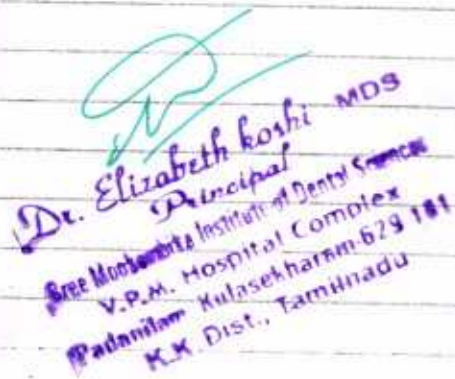 Dr. Elizabeth koshi MDS
Principal
Sree Mookambika Institute of Dental Sciences
V.P.M. Hospital Complex
Padanilam Kulasekharam-629 161
K.K. Dist., Tamilnadu